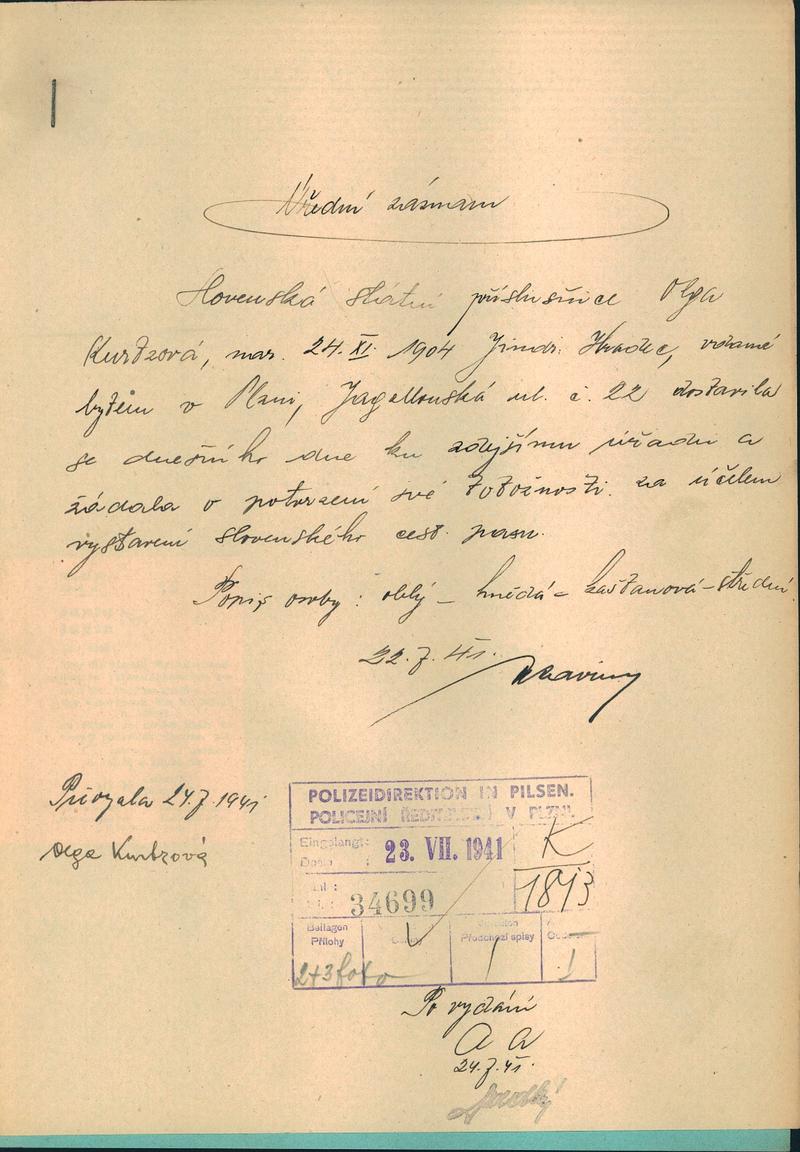 Úřední záznam
Slovenská státní příslušnice Olga
Kurtzová, nar. 24. XI. 1904 Jindř. Hradec, vdaná
bytem v Plzni, Jagellonská ul. č. 22 dostavila
se dnešního dne ku zdejšímu úřadu a
žádala o potvrzení své totožnosti. za účelem
vystavení slovenského cest. pasu.
Popis osoby: oblý - hnědá - kaštanová - střední.
22. 7. 41.
Převzala 24.7.1941
Olga Kurtzová
POLIZEIDIREKTION IN PILSEN.
POLICEJNÍ ŘEDITELSTVÍ V PLZNI.
Eingelangt:
Došlo :
23. VII. 1941
K
1813
34699
Beilagen
Přílohy
Předchozí spisy
2+3 foto
Po vydání
a a
24.7.41.